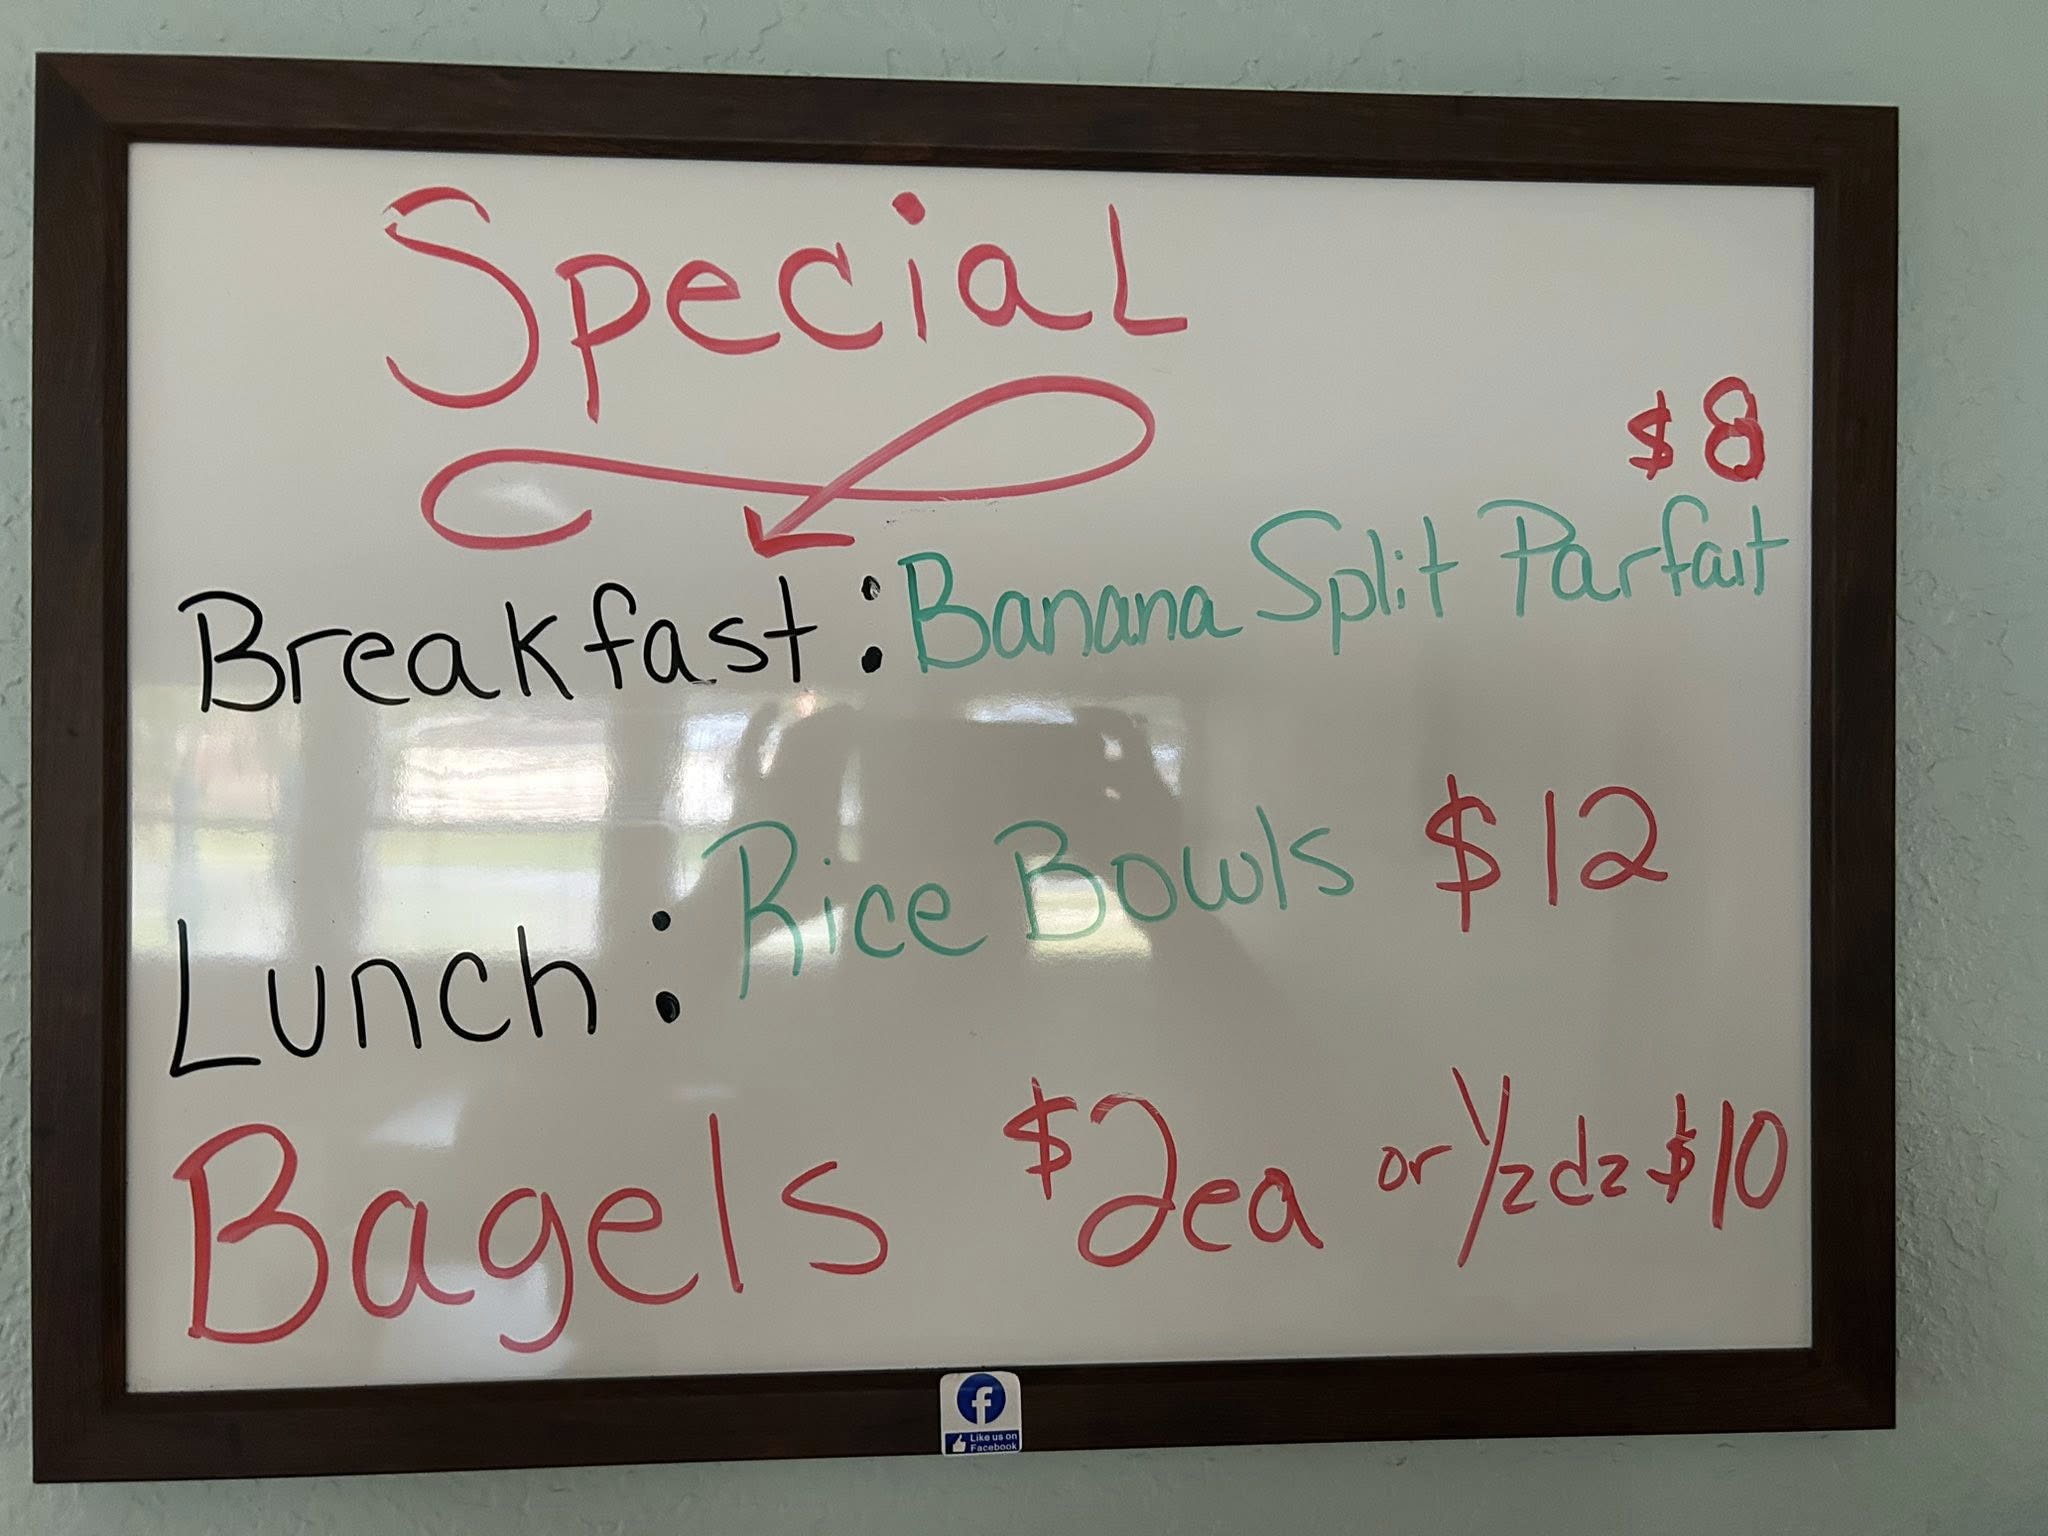 Special
$8
Breakfast: Banana Split Parfait
Lunch: Rice Bowls $12
Bagels $2ea or 1/2 dz $10
f
Like us on
Facebook